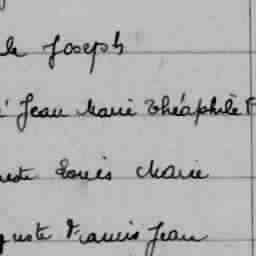 Joseph
Jean Marie Théophile
Louis Marie
Francis Jean